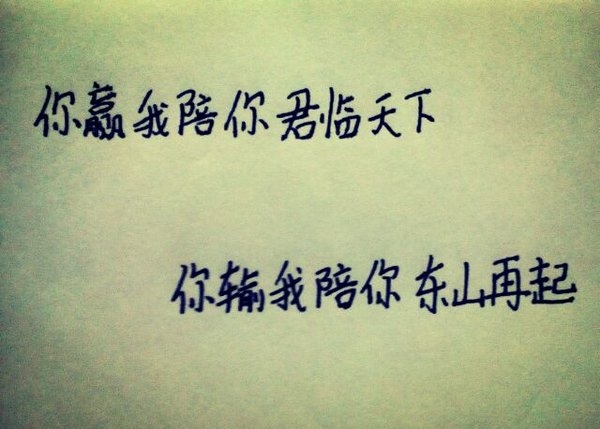 你赢我陪你君临天下
你输我陪你东山再起